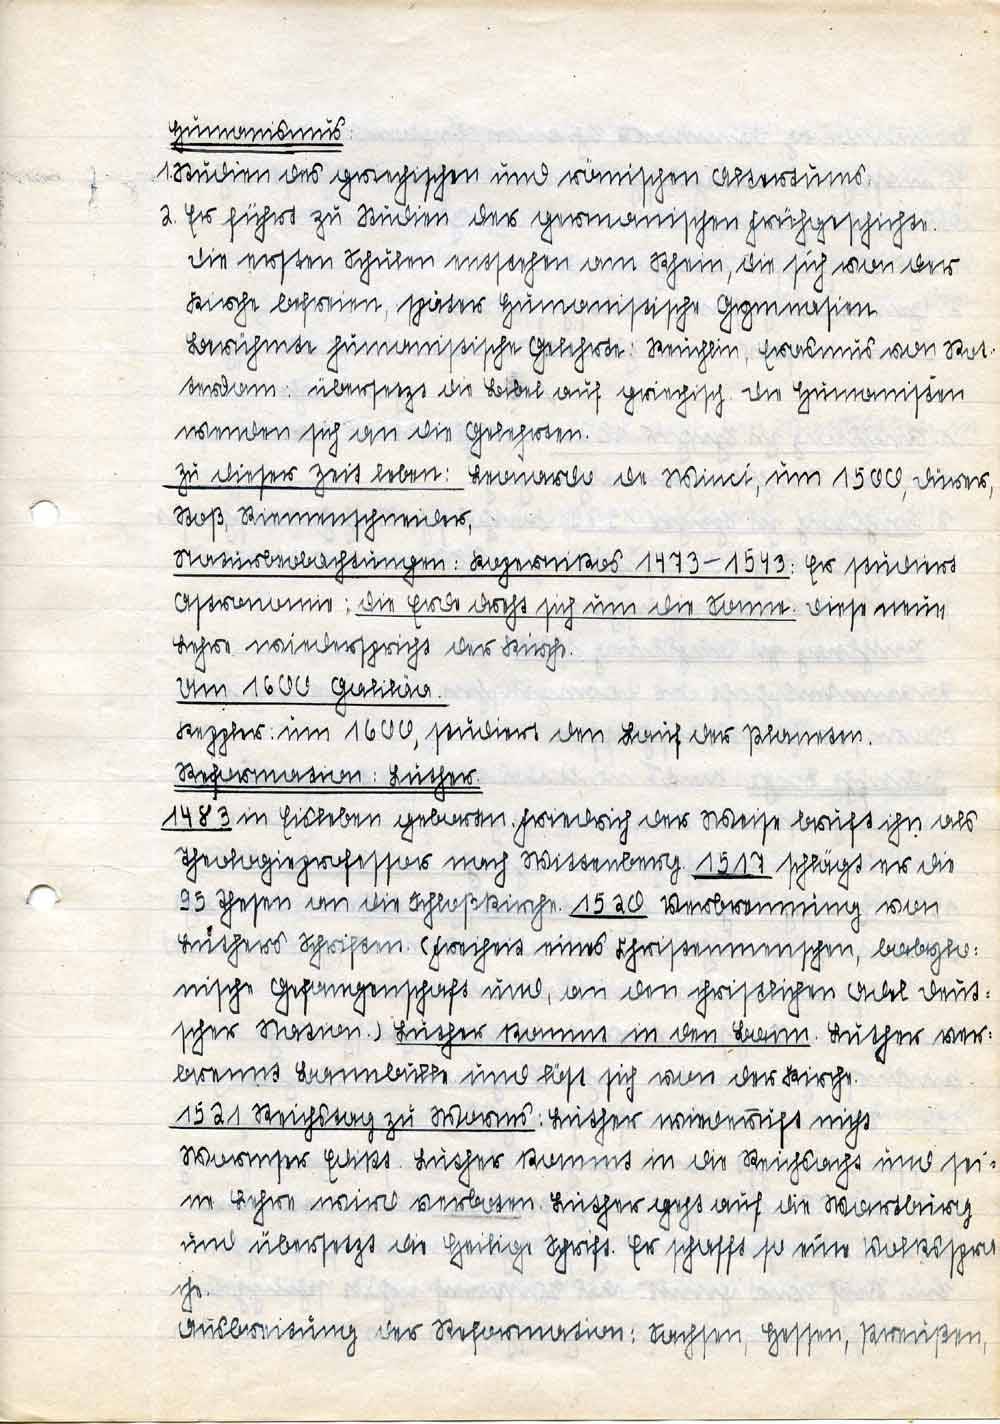 Humanismus:
1. Studien des griechischen und römischen Altertums.
2. Er führt zu Studien der germanischen Frühgeschichte.
Die ersten Schulen entstehen am Rhein, die sich von der
Kirche befreien, später Humanistische Gymnasien
Berühmte humanistische Gelehrte: Reuchlin, Erasmus von Rot-
terdam: übersetzt die Bibel auf griechisch. Die Humanisten
wenden sich an die Gelehrten.
Zu dieser Zeit leben: Leonardo de Winci, um 1500, Dürer,
Stoß, Riemenschneider,
Naturbeobachtungen: Kopernikos 1473-1543: Er studiert
Astronomie; die Erde dreht sich um die Sonne. Diese neue
Lehre wiederspricht der Kirche.
Um 1600 Galiläa.
Keppler: um 1600, studiert den Lauf der Planeten.
Reformation: Luther.
1483 in Eisleben geboren. Friedrich der Weise beruft ihn als
Theologieprofessor nach Wittenberg. 1517 schlägt er die
95 Thesen an die Schloßkirche. 1520 Verbrennung von
Luthers Schriften. (Freiheit eines Christenmenschen, babylo-
nische Gefangenschaft und, an den christlichen Adel deut-
scher Nation.) Luther kommt in den Bann. Luther ver-
brennt Bannbulle und löst sich von der Kirche.
1521 Reichstag zu Worms: Luther wiederruft nicht
Wormser Edikt. Luther kommt in die Reichsacht und sei-
ne Lehre wird verboten. Luther geht auf die Wartburg
und übersetzt die Heilige Schrift. Er schafft so eine Volksspra
che.
Ausbreitung der Reformation: Sachsen, Hessen, Preußen,